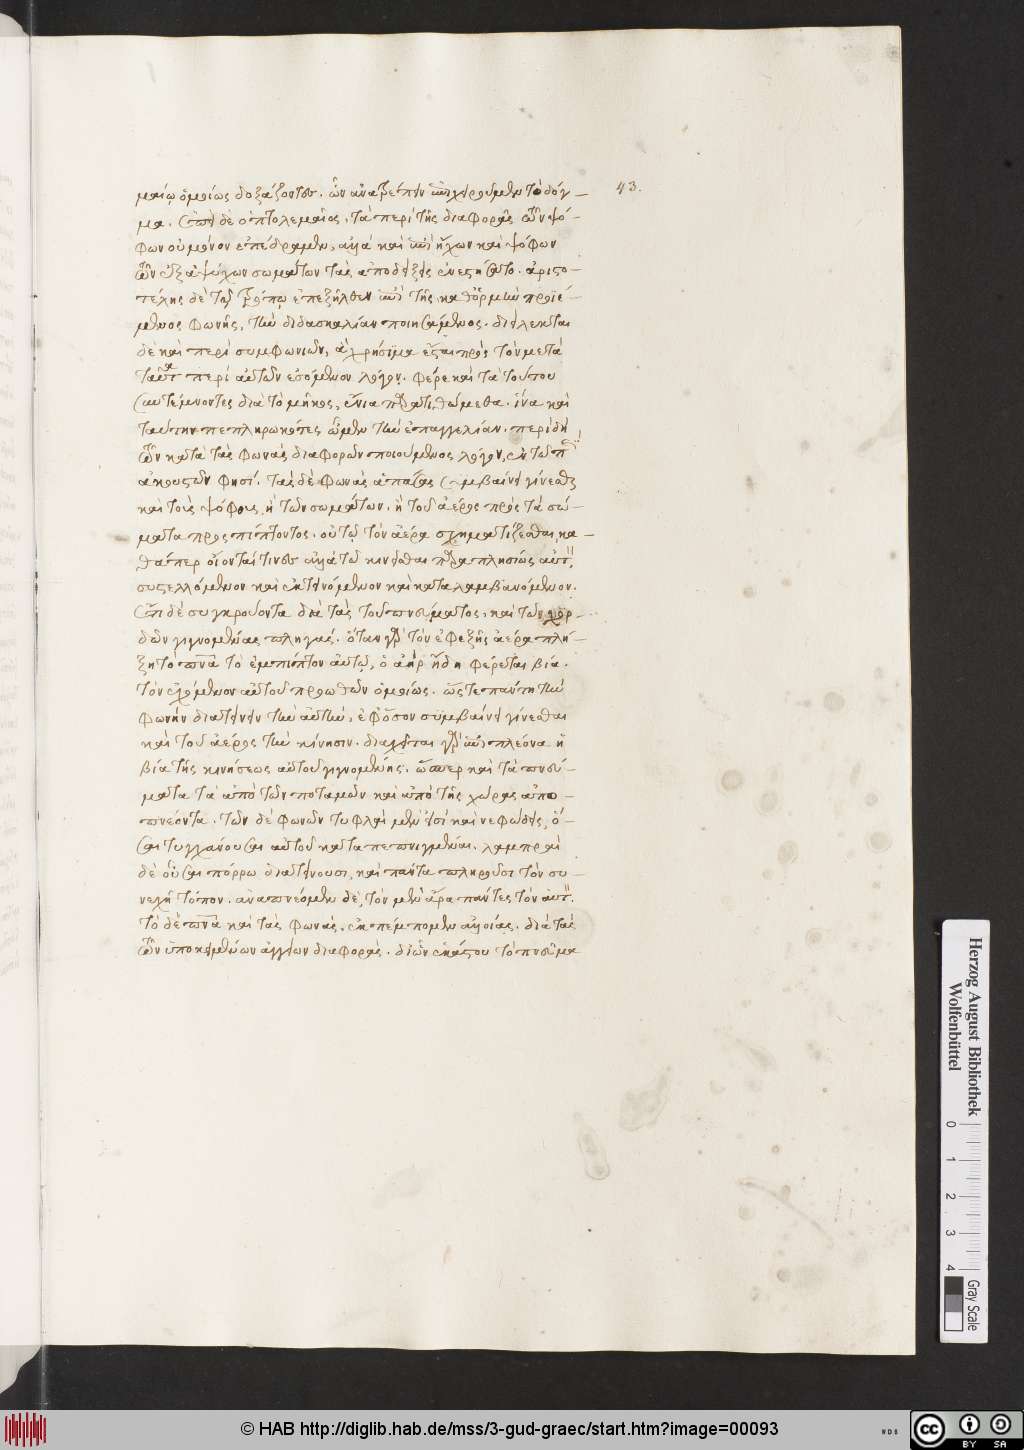 μαίῳ ὁμοίως δοξάζοντες. ὧν ἀνατρέπειν ἐπιχειροῦμεν τὸ δόγ-
43.
μα. ἐπεὶ δὲ ὁ πτολεμαῖος, τὰ περὶ τῆς διαφορᾶς τῶν ψό-
φων οὐ μόνον ἐπέδραμεν, ἀλλὰ καὶ ἐπὶ ἤχων καὶ ψόφων
τῶν ἐξ ἀψύχων σωμάτων τὰς ἀποδείξεις ἐνεστήσατο. ἀριστο-
τέλης δὲ τοῦ τρόπῳ ἐπεξῆλθεν ἐπὶ τῆς καθ' ὁρμὴν προϊε-
μένος φωνῆς, τὴν διδασκαλίαν ποιησάμενος. διείλεκται
δὲ καὶ περὶ συμφωνιῶν, ἃ χρήσιμα ἔσται πρὸς τὸν μετὰ
ταῦτα περὶ αὐτῶν ἐσόμενον λόγον. φέρε καὶ τὰ τούτου
συντέμνοντες διὰ τὸ μῆκος, ἔνια παραθώμεθα. ἵνα καὶ
ταύτην πεπληρωκότες ὦμεν τὴν ἐπαγγελίαν. περὶ δὴ
τῶν κατὰ τὰς φωνὰς διαφορῶν ποιούμενος λόγον, ἐν τῷ περὶ
ἀκουστῶν φησί. τὰς δὲ φωνὰς ἁπάσας συμβαίνει γίνεσθαι
καὶ τοὺς ψόφους, ἢ τῶν σωμάτων, ἢ τοῦ ἀέρος πρὸς τὰ σώ-
ματα προσπίπτοντος. οὐ τῷ τὸν ἀέρα σχηματίζεσθαι, κα-
θάπερ οἴονταί τινες ἀλλὰ τῷ κινεῖσθαι παραπλησίως αὐτὸν,
συστελλόμενον καὶ ἐκτεινόμενον καὶ καταλαμβανόμενον.
ἔτι δὲ συγκρούοντα διὰ τὰς τοῦ πνεύματος, καὶ τῶν χορ-
δῶν γιγνομένας πληγάς. ὅταν γὰρ τὸν ἐφεξῆς ἀέρα πλή-
ξῃ τὸ πνεῦμα τὸ ἐμπίπτον αὐτῷ, ὁ ἀὴρ ἤδη φέρεται βίᾳ.
τὸν ἐχόμενον αὐτοῦ προωθῶν ὁμοίως. ὥστε πάντῃ τὴν
φωνὴν διατείνειν τὴν αὐτὴν, ἐφόσον συμβαίνει γίνεσθαι
καὶ τοῦ ἀέρος τὴν κίνησιν. διαχεῖται γὰρ ἐπὶ πλέονα ἡ
βία τῆς κινήσεως αὐτοῦ γιγνομένης. ὥσπερ καὶ τὰ πνεύ-
ματα τὰ ἀπὸ τῶν ποταμῶν καὶ ἀπὸ τῆς χώρας ἀπο-
πνέοντα. τῶν δὲ φωνῶν τυφλαὶ μέν εἰσι καὶ νεφώδεις, ὅ-
σαι τυγχάνουσαι αὐτοῦ καταπεπνιγμέναι. λαμπραὶ
δὲ οὖσαι πόρρω διατείνουσι, καὶ πάντα πληροῦσι τὸν συ-
νεχῆ τόπον. ἀναπνέομεν δὲ, τὸν μὲν ἀέρα πάντες τὸν αὐτόν.
τὸ δὲ πνεῦμα καὶ τὰς φωνὰς, ἐκπέμπομεν ἀλλοίας. διὰ τὰς
τῶν ὑποκειμένων ἀγγείων διαφοράς. δι' ὧν ἑκάστου τὸ πνεῦμα
Herzog August Bibliothek
Wolfenbüttel
0 1 2 3 4
Gray Scale
© HAB http://diglib.hab.de/mss/3-gud-graec/start.htm?image=00093
WDB
cc BY SA